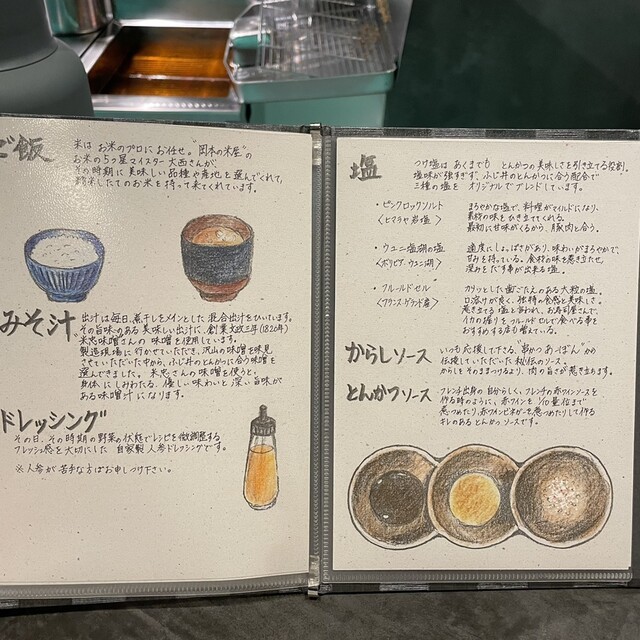 ご飯
米は お米のプロにお任せ。"岡本の米屋"の
お米の5つ星マイスター 大西さんが、
その時期に美味しい品種や産地を選んでくれて、
精米したてのお米を持って来てくれています。
みそ汁
出汁は毎日、煮干しをメインとした混合出汁をひいています。
その旨味のある美味しい出汁に、創業文政三年(1820年)
米忠味噌さんの味噌を使用しています。
製造現場に行かせていただき、沢山の味噌を味見
させていただいた中から、ふじ井のとんかつに合う味噌を
選んできました。米忠さんの味噌を使うと、
身体にしみわたる、優しい味わいと深い旨味が
ある味噌汁になります。
ドレッシング
その日、その時期の野菜の状態でレシピを微調整する
フレッシュ感を大切にした 自家製人参ドレッシングです。
※人参が苦手な方はお申しつけ下さい。
塩
つけ塩は あくまでも とんかつの美味しさを引き立てる役割。
塩味が強すぎず、ふじ井のとんかつに合う配合で
三種の塩を オリジナルでブレンドしています。
・ピンクロックソルト
〈ヒマラヤ岩塩〉
まろやかな塩で、料理がマイルドになり、
素材の味をひき立ててくれる。
最初に甘味がくるから、豚肉と合う。
・ウユニ塩湖の塩
〈ボリビア・ウユニ湖〉
適度にしょっぱさがあり、味わいがまろやかで、
甘みを持っている。食材の味を惹き立たせ、
深みをだす事が出来る塩。
・フルールドセル
〈フランス・ゲランド産〉
カリッとした歯ごたえのある大粒の塩。
口溶けが良く、独特の食感と美味しさ。
惹き立てる塩と言われ、お寿司屋さんで、
イカの握りをフルールドセルで食べる事を
おすすめする店も増えている。
からしソース
いつも応援して下さる、"串かつ あーぼん"から
伝授していただいた私伝のソース。
からしをそのままつけるより、肉の旨さが惹き立ちます。
とんかつソース
フレンチ出身の自分らしく、フレンチの赤ワインソースを
作る時のように、赤ワインを 1/10量位まで
煮つめたり、赤ワインビネガーを煮つめたりして作る
キレのあるとんかつソースです。